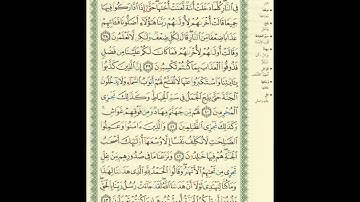 فِي ٱلنَّارِۖ كُلَّمَا دَخَلَتۡ أُمَّةٞ لَّعَنَتۡ أُخۡتَهَاۖ حَتَّىٰٓ إِذَا ٱدَّارَكُواْ فِيهَا
جَمِيعٗا قَالَتۡ أُخۡرَىٰهُمۡ لِأُولَىٰهُمۡ رَبَّنَا هَٰٓؤُلَآءِ أَضَلُّونَا فَـَٔاتِهِمۡ
عَذَابٗا ضِعۡفٗا مِّنَ ٱلنَّارِۖ قَالَ لِكُلّٖ ضِعۡفٞ وَلَٰكِن لَّا تَعۡلَمُونَ ٣٨
وَقَالَتۡ أُولَىٰهُمۡ لِأُخۡرَىٰهُمۡ فَمَا كَانَ لَكُمۡ عَلَيۡنَا مِن فَضۡلٖ
فَذُوقُواْ ٱلۡعَذَابَ بِمَا كُنتُمۡ تَكۡسِبُونَ ٣٩ إِنَّ ٱلَّذِينَ كَذَّبُواْ
بِـَٔايَٰتِنَا وَٱسۡتَكۡبَرُواْ عَنۡهَا لَا تُفَتَّحُ لَهُمۡ أَبۡوَٰبُ ٱلسَّمَآءِ وَلَا يَدۡخُلُونَ
ٱلۡجَنَّةَ حَتَّىٰ يَلِجَ ٱلۡجَمَلُ فِي سَمِّ ٱلۡخِيَاطِۚ وَكَذَٰلِكَ نَجۡزِي
ٱلۡمُجۡرِمِينَ ٤٠ لَهُم مِّن جَهَنَّمَ مِهَادٞ وَمِن فَوۡقِهِمۡ غَوَاشٖۚ
وَكَذَٰلِكَ نَجۡزِي ٱلظَّٰلِمِينَ ٤١ وَٱلَّذِينَ ءَامَنُواْ وَعَمِلُواْ
ٱلصَّٰلِحَٰتِ لَا نُكَلِّفُ نَفۡسًا إِلَّا وُسۡعَهَآ أُوْلَٰٓئِكَ أَصۡحَٰبُ
ٱلۡجَنَّةِۖ هُمۡ فِيهَا خَٰلِدُونَ ٤٢ وَنَزَعۡنَا مَا فِي صُدُورِهِم مِّنۡ غِلّٖ
تَجۡرِي مِن تَحۡتِهِمُ ٱلۡأَنۡهَٰرُۖ وَقَالُواْ ٱلۡحَمۡدُ لِلَّهِ ٱلَّذِي هَدَىٰنَا لِهَٰذَا
وَمَا كُنَّا لِنَهۡتَدِيَ لَوۡلَآ أَنۡ هَدَىٰنَا ٱللَّهُۖ لَقَدۡ جَآءَتۡ رُسُلُ رَبِّنَا بِٱلۡحَقِّۖ